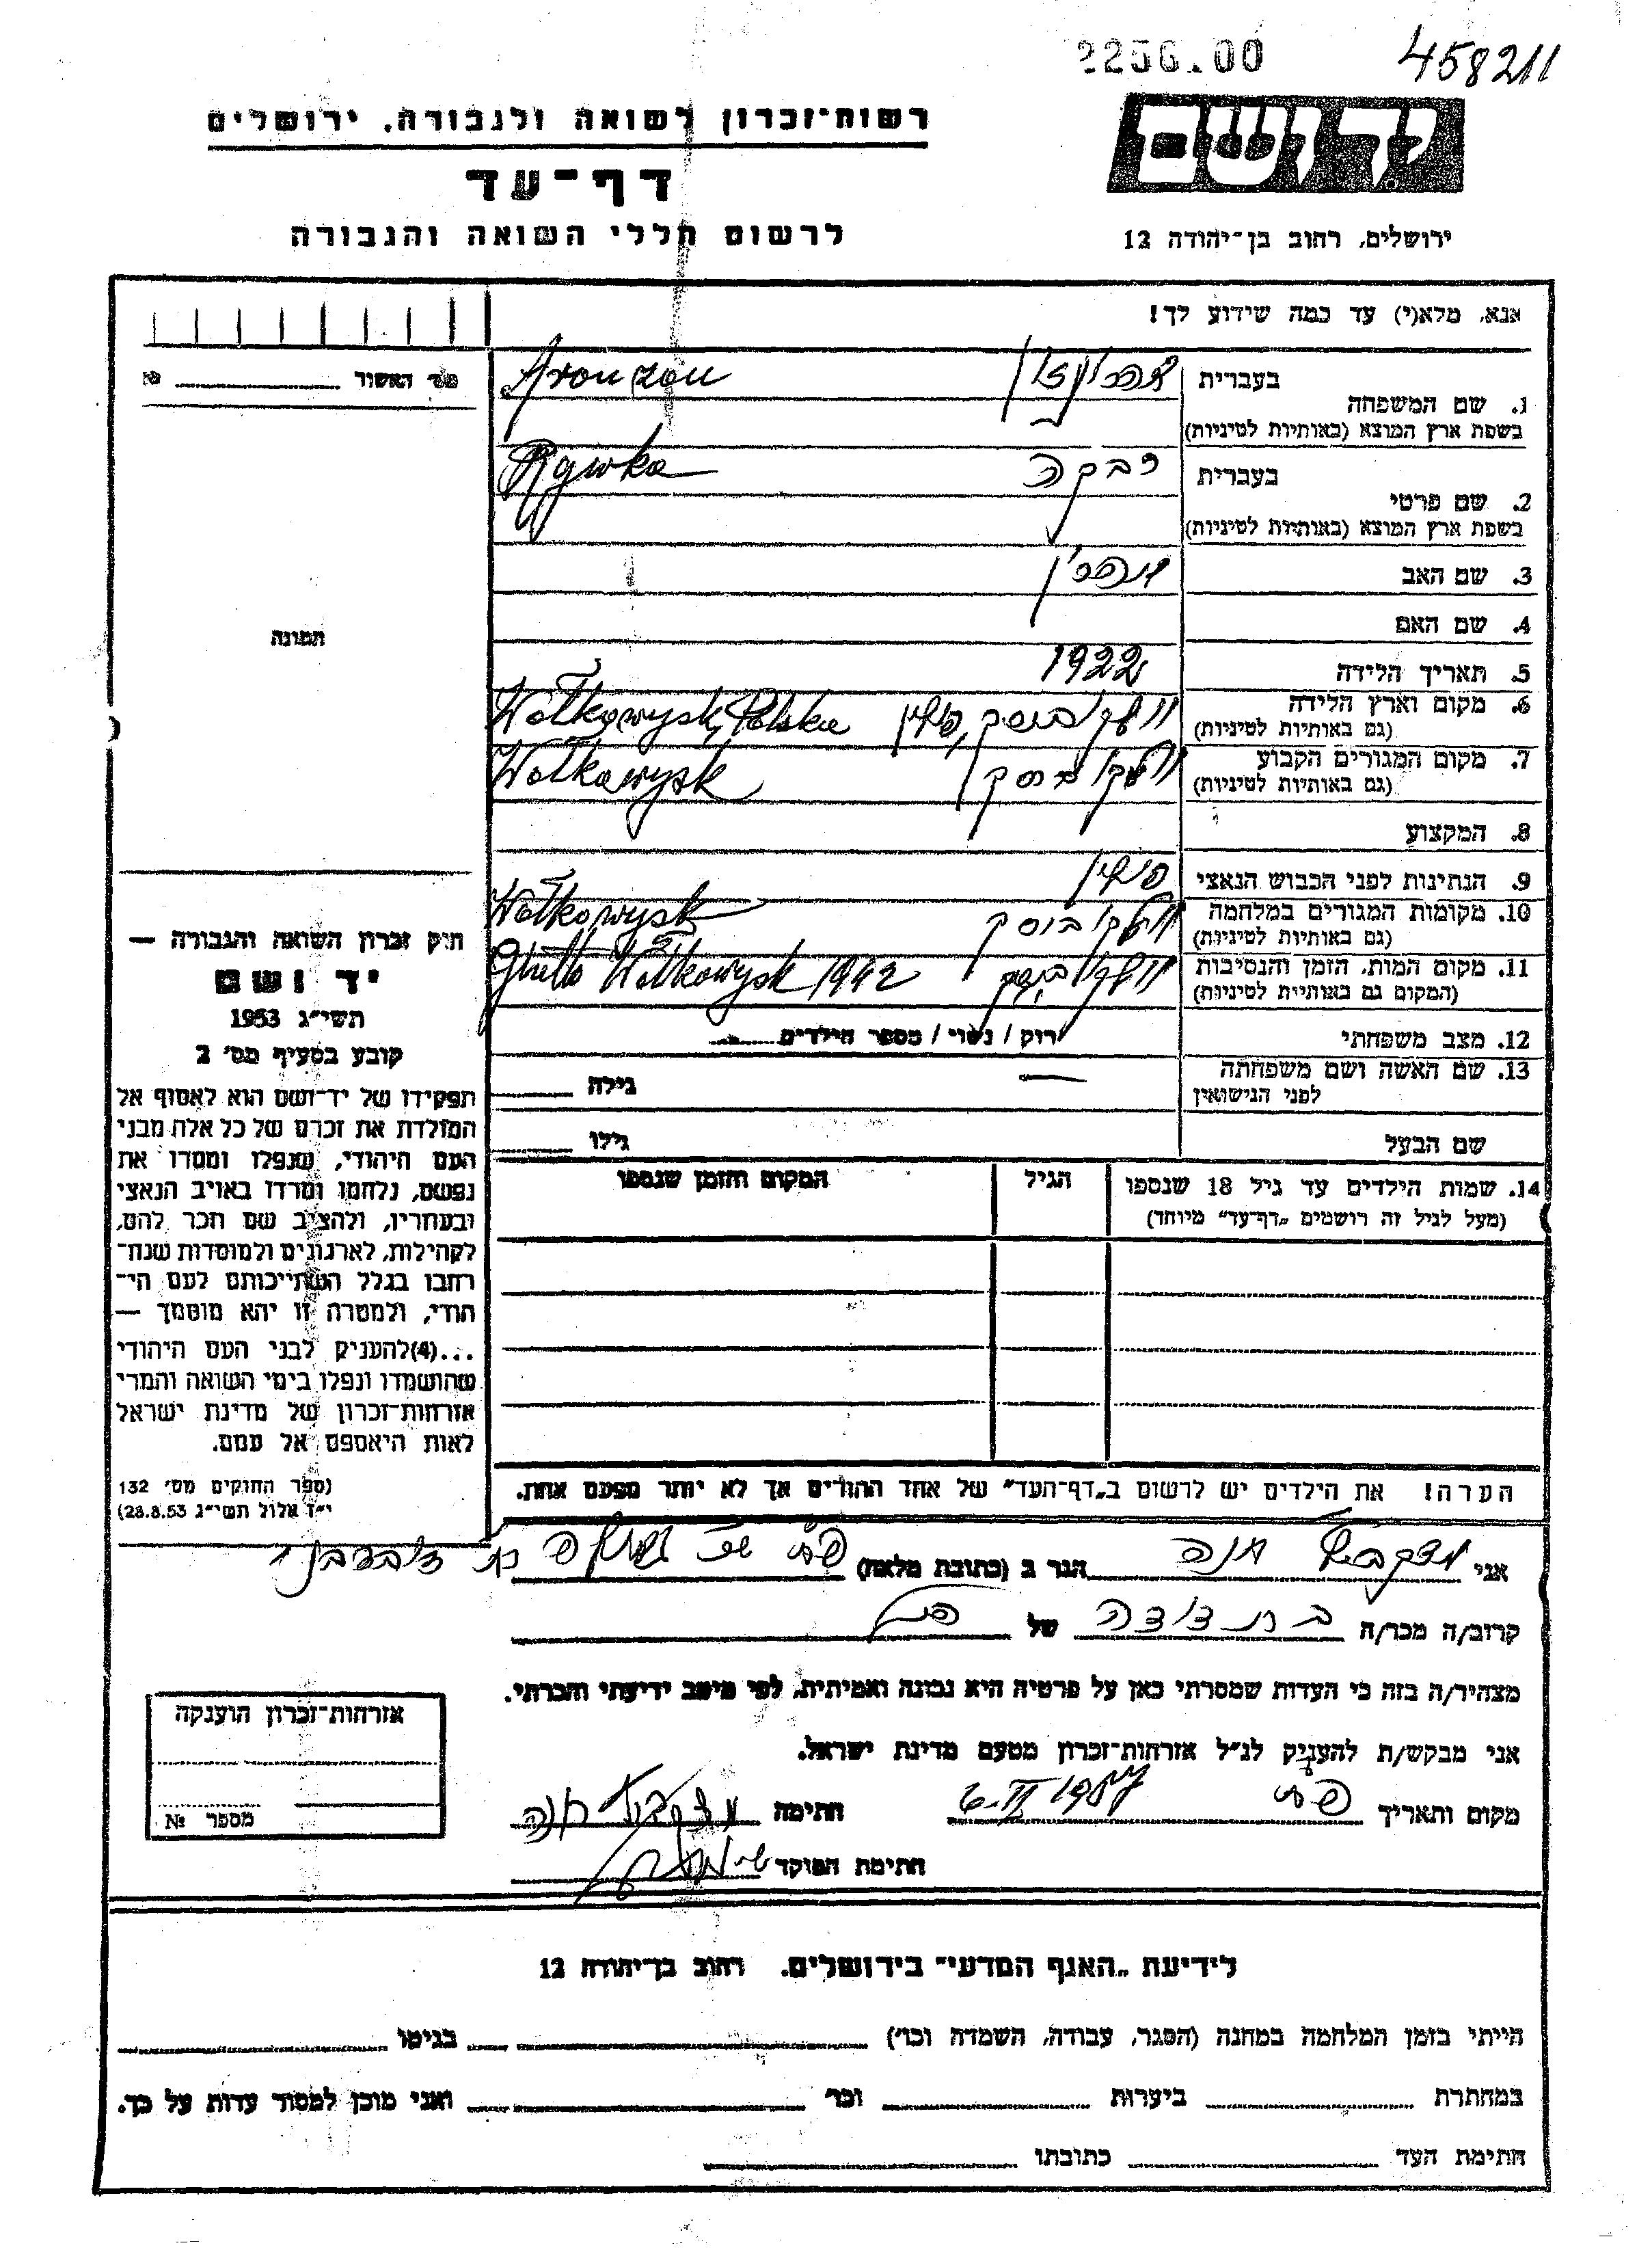 2256.00
458211
רשות־זכרון לשואה ולגבורה, ירושלים
יד ושם
דף־עד
לרשום חללי השואה והגבורה
ירושלים, רחוב בן־יהודה 12
אנא, מלא(י) עד כמה שידוע לך!
מס׳ האשור № 
1. שם המשפחה בעברית
Aronzon
בשפת ארץ המוצא (באותיות לטיניות)
2. שם פרטי בעברית רבקה
Rywka
בשפת ארץ המוצא (באותיות לטיניות)
3. שם האב
4. שם האם
5. תאריך הלידה 1922
6. מקום וארץ הלידה ולקוביסק, פולין Wołkowysk, Polska
(גם באותיות לטיניות)
7. מקום המגורים הקבוע ולקוביסק Wołkowysk
(גם באותיות לטיניות)
8. המקצוע
9. הנתינות לפני הכבוש הנאצי פולין
10. מקומות המגורים במלחמה ולקוביסק Wołkowysk
(גם באותיות לטיניות)
11. מקום המות, הזמן והנסיבות ולקוביסק Ghetto Wołkowysk 1942
(המקום גם באותיות לטיניות)
12. מצב משפחתי רוק / נשוי / מספר הילדים
13. שם האשה ושם משפחתה — גילה
לפני הנישואין
שם הבעל גילו
14. שמות הילדים עד גיל 18 שנספו הגיל המקום והזמן שנספו
(מעל לגיל זה רושמים „דף־עד״ מיוחד)
הערה! את הילדים יש לרשום ב„דף־העד״ של אחד ההורים אך לא יותר מפעם אחת.
תמונה
חוק זכרון השואה והגבורה —
יד ושם
תשי״ג 1953
קובע בסעיף מס׳ 2
תפקידו של יד־ושם הוא לאסוף אל
המולדת את זכרם של כל אלה מבני
העם היהודי, שנפלו ומסרו את
נפשם, נלחמו ומרדו באויב הנאצי
ובעוזריו, ולהציב שם וזכר להם,
לקהילות, לארגונים ולמוסדות שנח־
רבו בגלל השתייכותם לעם הי־
הודי, ולמטרה זו יהא מוסמך —
...(4) להעניק לבני העם היהודי
שהושמדו ונפלו בימי השואה והמרי
אזרחות־זכרון של מדינת ישראל
לאות היאספם אל עמם.
(ספר החוקים מס׳ 132
י״ז אלול תשי״ג 28.8.53)
אני חנה הגר ב (כתובת מלאה)
קרוב/ה מכר/ה בת דודה של
מצהיר/ה בזה כי העדות שמסרתי כאן על פרטיה היא נכונה ואמיתית, לפי מיטב ידיעתי והכרתי.
אני מבקש/ת להעניק לנ״ל אזרחות־זכרון מטעם מדינת ישראל.
מקום ותאריך 1957 חתימה חנה
חתימת הפוקד
אזרחות־זכרון הוענקה
מספר №
לידיעת „האגף המדעי״ בירושלים. רחוב בן־יהודה 12
הייתי בזמן המלחמה במחנה (הסגר, עבודה, השמדה וכו׳) בגיטו
במחתרת ביערות וכו׳ ואני מוכן למסור עדות על כך.
חתימת העד כתובתו